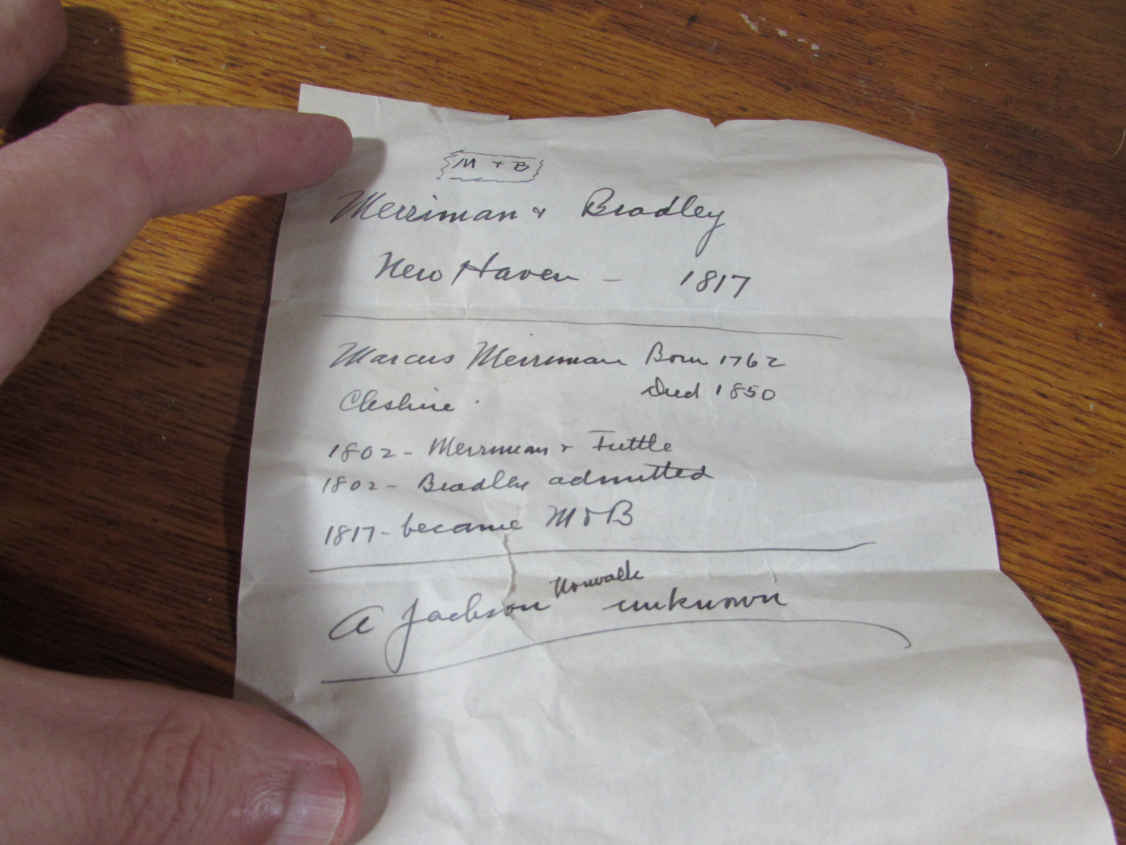 M + B
Merriman & Bradley
New Haven - 1817
Marcus Merriman Born 1762
Cheshire Died 1850
1802 - Merriman & Tuttle
1802 - Bradley admitted
1817 - became M & B
A Jackson Norwalk unknown